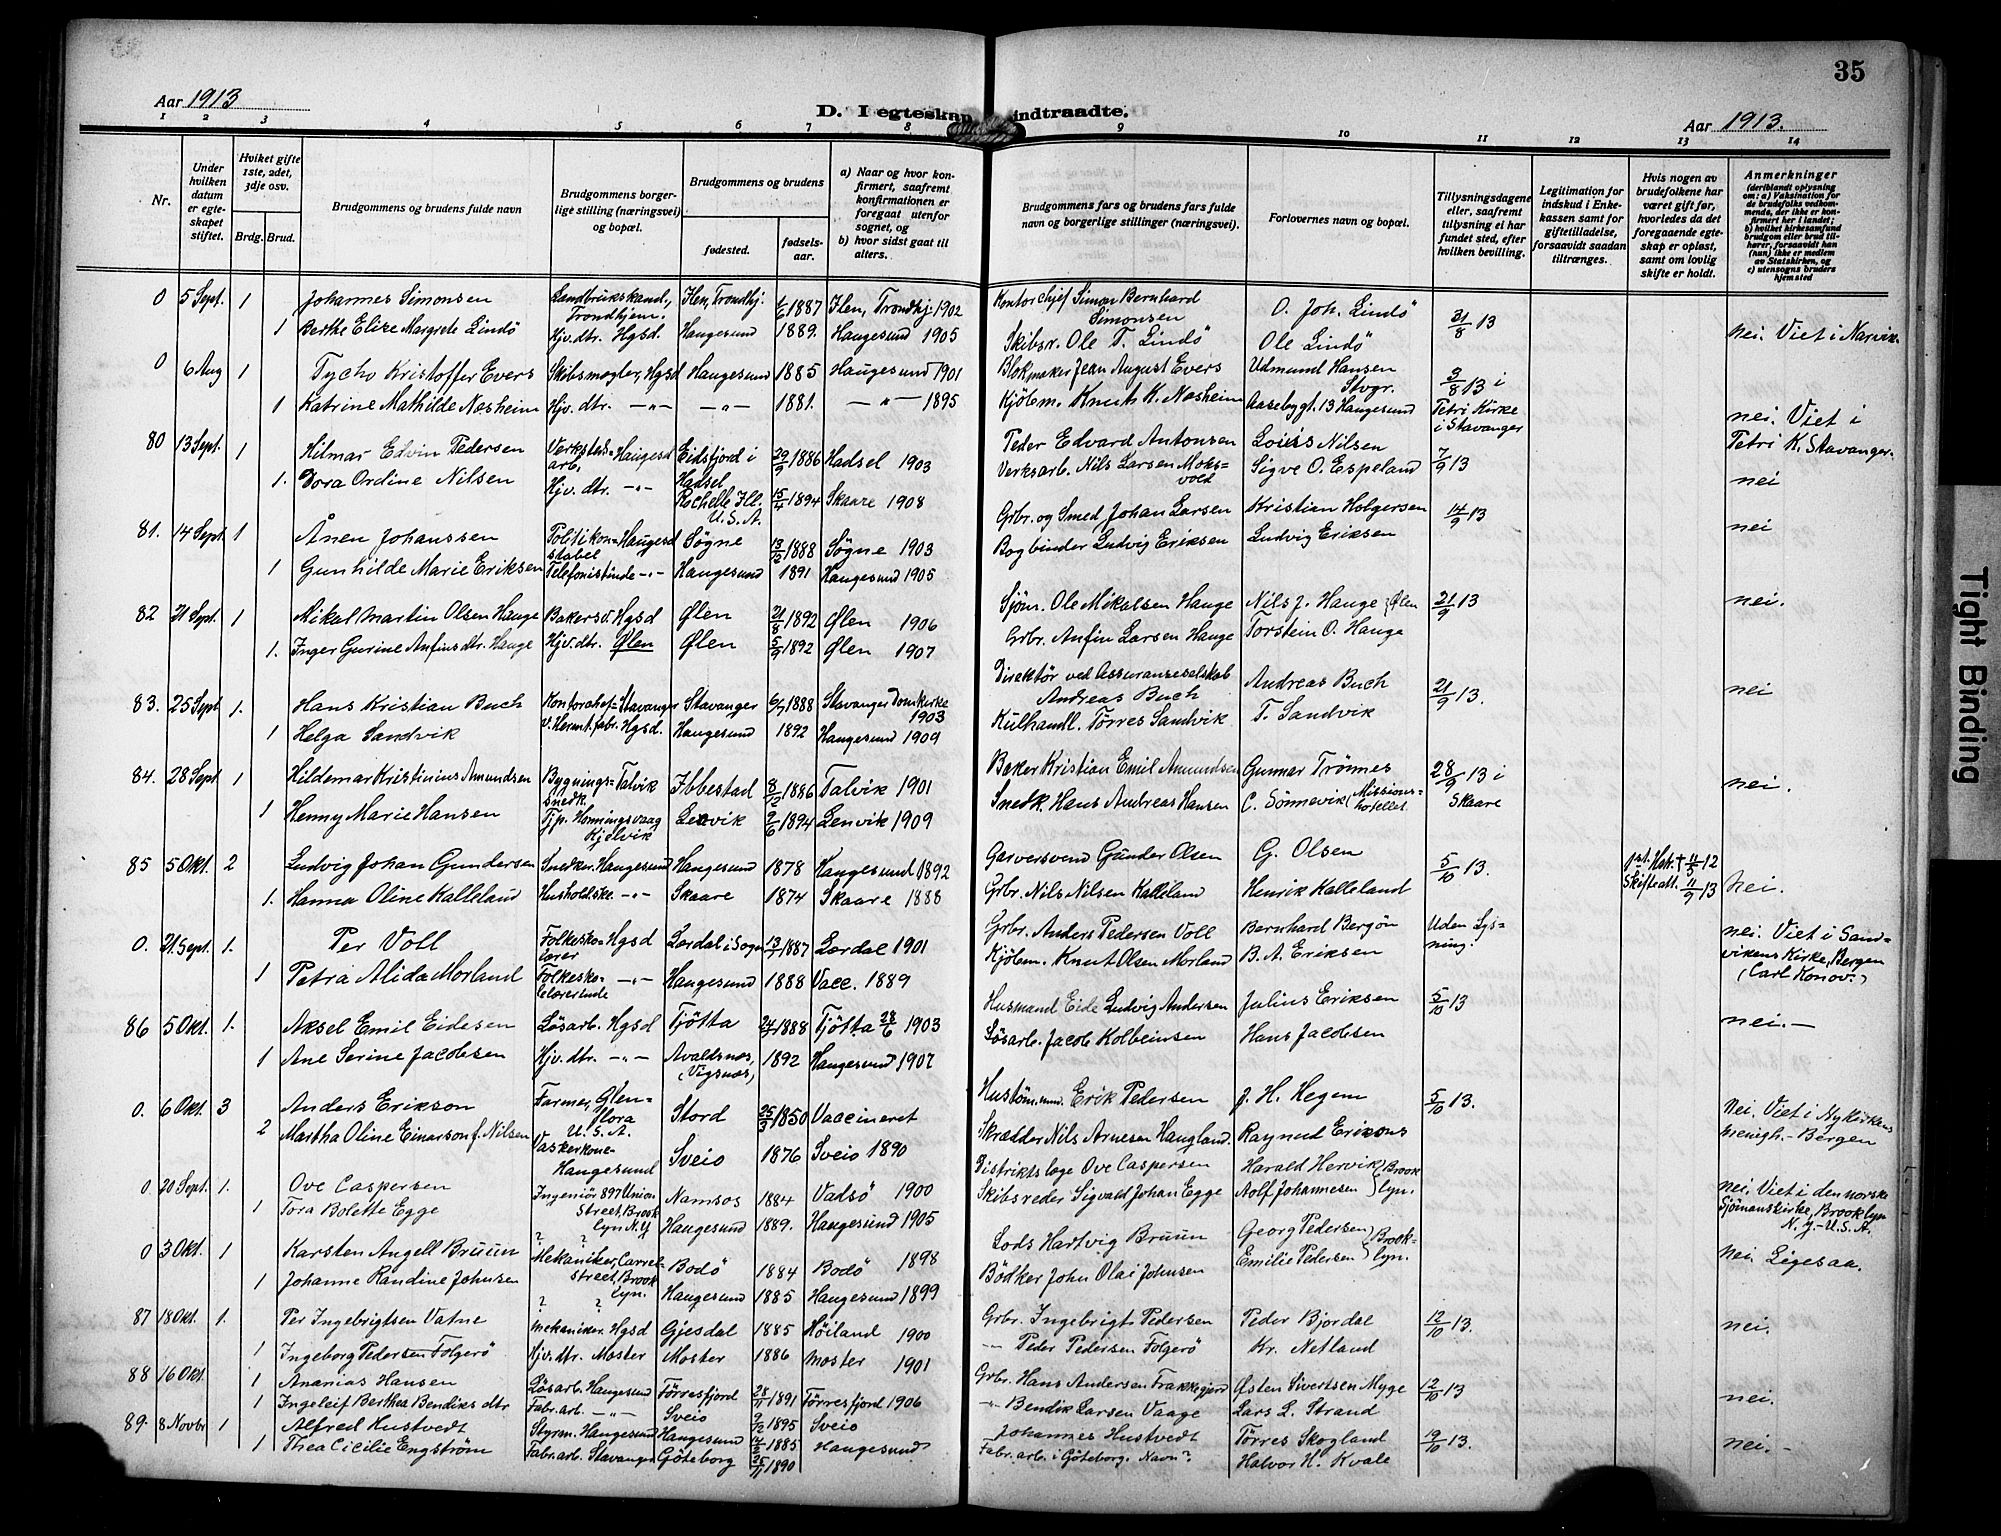 35
Aar 1913
D. I egteskap indtraadte.
Aar 1913.
1 2 3 4 5 6 7 8 9 10 11 12 13 14
Nr.
Under hvilken datum er egteskapet stiftet.
Hviket gifte 1ste, 2det, 3dje osv.
Brdg. Brud.
Brudgommens og brudens fulde navn
Brudgommens borgerlige stilling (næringsvei) og bopæl.
Brudgommens og brudens
fødested.
fødselsaar.
a) Naar og hvor konfirmert, saafremt konfirmationen er foregaat utenfor sognet, og
b) hvor sidst gaat til alters.
Brudgommens fars og brudens fars fulde navn og borgerlige stillinger (næringsvei).
Forlovernes navn og bopæl.
Tillysningsdagene eller, saafremt tillysning ei har fundet sted, efter hvilken bevilling.
Legitimation for indskud i Enkekassen samt for giftetilladelse, forsaavidt saadan tiltrænges.
Hvis nogen av brudefolkene har været gift før, hvorledes da det foregaaende egteskap er opløst, samt om lovlig skifte er holdt.
Anmerkninger
(deriblandt oplysning om: a) Vaksination for de brudefolks vedkommende, der ikke er konfirmert her i landet; b) hvilket kirkesamfund brudgom eller brud tilhører, forsaavidt han (hun) ikke er medlem av Statskirken, og c) utensogns bruders hjemsted
0 5 Sept. 1 Johannes Simonsen Landbrukskand., Trondhjem. Ilen, Trondhj. 6/6 1887 Ilen, Trondhj. 1902 Kontorchjef Simon Bernhard Simonsen O. Joh. Lindö 31/8 13
1 Berthe Elise Margrete Lindö Hjv. dtr. Hgsd. Haugesund 1889. Haugesund 1905 Skibsr. Ole T. Lindö Ole Lindö nei. Viet i Narvik.
0 6 Aug 1 Tycho Kristoffer Evers Skibsmægler, Hgsd Haugesund 1885 Haugesund 1901 Blokmaker Jean August Evers Udmund Hansen Stvgr. 3/8 13 i Petri Kirke i Stavanger
1 Katrine Mathilde Nesheim Hjv. dtr. -"- -"- 1881. -"- 1895 Kjölem. Knut K. Nesheim Aasebygt. 13 Haugesund nei. Viet i Petri K. Stavanger.
80 13 Sept. 1 Hilmar Edvin Pedersen Verkstedsarb. Haugesd Eidsfjord i Hadsel 29/9 1886 Hadsel 1903 Peder Edvard Antonsen Louis Nilsen 7/9 13
1. Dora Ordine Nilsen Hjv. dtr. -"- Rochelle Ill. U.S.A. 15/4 1894 Skaare 1908 Verksarb. Nils Larsen Moksvold Sigve O. Espeland nei
81. 14 Sept 1 Ånen Johanssen Politikonstabel Haugesd Søgne 13/12 1888 Søgne 1903 Grbr. og Smed Johan Larsen Kristian Holgersen 14/9 13 nei
1 Gunhilde Marie Eriksen Telefonistinde -"- Haugesund 1891 Haugesund 1905 Bogbinder Ludvig Eriksen Ludvig Eriksen
82 21 Sept. 1 Mikal Martin Olsen Hauge Bakersv. Hgsd Ølen 21/8 1892 Ølen 1906 Sjöm. Ole Mikalsen Hauge Nils J. Hauge } Ølen 21/9 13 nei.
1. Inger Gurine Anfinsdtr. Hauge Hjv. dtr. Ølen Ølen 5/9 1892 Ølen 1907 Grbr. Anfin Larsen Hauge Torstein O. Hauge
83. 25 Sept 1. Hans Kristian Buch Kontorchef Stavanger v. Hermt. fabr. Stavanger 6/7 1888 Stavanger Domkirke 1903 Direktör ved Assuranseselskab Andreas Buch Andreas Buch 21/9 13. nei
1 Helga Sandvik Hgsd. Haugesund 1892 Haugesund 1909 Kulhandl. Törres Sandvik T. Sandvik
84. 28 Sept. 1 Hildemar Kristinius Amundsen Bygningssnedk. Talvik Ibbestad 8/12 1886 Talvik 1901 Baker Kristian Emil Amundsen Gunnar Trönnes 28/9 13 i Skaare nei.
1 Henny Marie Hansen Tjp. Honningsvaag Kjelvik Lenvik 9/6 1894 Lenvik 1909 Snedk. Hans Andreas Hansen C. Sönnevik (Missionshotellet
85 5 Okt. 2 Ludvig Johan Gundersen Snedker. Haugesund Haugesund 1878 Haugesund 1892 Garversvend Gunder Olsen G. Olsen 5/10 13. Skifteatt. 11/9 13 nei.
1. Hanna Oline Kalleland Husholdske. -"- Skaare 1874 Skaare 1888 Grbr. Nils Nilsen Kalleland Henrik Kalleland
0. 21 Sept. 1. Per Voll Folkeskolærer Hgsd Lærdal i Sogn 13/7 1887 Lærdal 1901 Grbr. Anders Pedersen Voll Bernhard Bergön Uden Lysning. nei. Viet i Sandvikens Kirke, Bergen (Carl Konov.)
1 Petra Alida Morland Folkeskolelærerinde -"- Haugesund 1888 Vacc. 1889 Kjölem. Knut Olsen Morland B. A. Eriksen
86 5 Okt. 1. Aksel Emil Eidesen Lösarb. Hgsd Tjötta 24/7 1888 Tjötta 28/6 1903 Husmand Eide Ludvig Andersen Julius Eriksen 5/10 13 nei.-
1 Ane Serine Jacobsen Hjv. dtr. -"- Avaldsnes, (Vigsnes) 1892 Haugesund 1907 Lösarb. Jacob Kolbeinsen Hans Jacobsen
0. 6 Okt. 3 Anders Erikson Farmer, Glenflora U.S.A. Stord 25/3 1850 Vaccineret Erik Pedersen J. H. Hegem 5/10 13. nei. Viet i Nykirkens menigh. - Bergen
2 Martha Oline Einarson f. Nilsen Vaskerkone Haugesund Sveio 1876 Sveio 1890 Skrædder Nils Arnesen Haugland.
0 20 Sept. 1. Ove Caspersen Ingeniör 897 Union Street, Brooklyn N.Y. Namsos 1884 Vadsö 1900 Distriktslæge Ove Caspersen Harald Hervik } Brooklyn. nei. Viet i den norske Sjömanskirke, Brooklyn N.Y.-U.S.A.
1 Tora Bolette Egge ? ? Haugesund 1889. Haugesund 1905 Skibsreder Sigvald Johan Egge Adolf Johannesen
0 3 Okt. 1 Karsten Angell Bruun Mekaniker, Carrelstreet, Brooklyn. Bodö 1884 Bodö 1898 Lods Hartvig Bruun Georg Pedersen } Brooklyn. nei. Ligesaa.
1 Johanne Randine Johnsen ? ? Haugesund 1885 Haugesund 1899 Bödker John Olai Johnsen Emilie Pedersen
87 18 Okt. 1. Per Ingebrigtsen Vatne Mekaniker. Hgsd Gjesdal 1885 Höiland 1900 Grbr. Ingebrigt Pedersen Peder Bjordal 12/10 13. nei.
1 Ingeborg Pedersen Folgerö Hjv. dtr. Moster Moster 1886 Moster 1901 -"- Peder Pedersen Folgerö Kr. Netland
88 16 Okt. 1 Ananias Hansen Lösarb. Haugesund Förresfjord 28/11 1891 Förresfjord 1906 Grbr. Hans Andersen Frakkagjerd Østen Sivertsen Myge 12/10 13 nei.
1 Ingeleif Berthea Bendiksdtr Fabr. arb. -"- Sveio 9/2 1895 Sveio -"- Bendik Larsen Vaage Lars L. Strand
89. 8 Novbr 1 Alfred Hustvedt Styrm. Haugesund Haugesund 14/2 1885 Haugesund Johannes Hustvedt Törres Skogland 19/10 13. nei.-
1 Thea Cicilie Engström Fabr. arb. Stavanger Göteborg 25/11 1890 Fabr. arb. i Göteborg. Navn? Halvor H. Kvale
Tight Binding